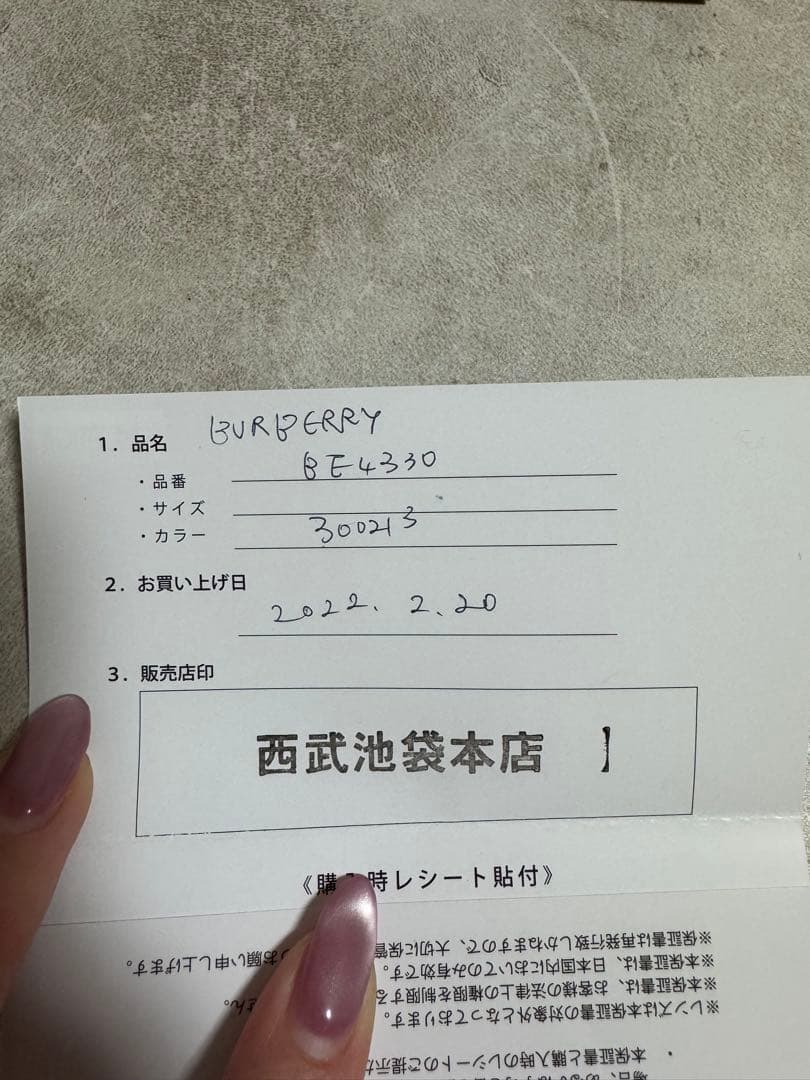 1. 品名 BURBERRY
・品番 BE4330
・サイズ
・カラー 300213
2. お買い上げ日
2022. 2. 20
3. 販売店印
西武池袋本店 】
《購 時レシート貼付》
※保証書は再発行致しかねますので、大切に保管 のお願い申し上げます。
※本保証書は、日本国内においてのみ有効です。
※本保証書は、お客様の法律上の権限を制限する せん。
※レンズは本保証書の対象外となっております。
・本保証書と購入時のレシートのご提示